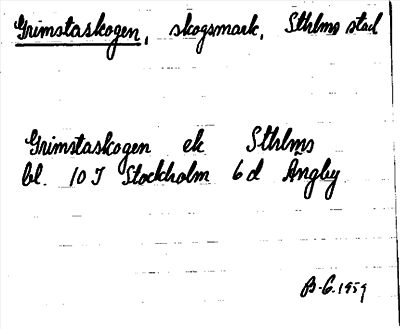 Grimstaskogen, skogsmark, Sthlms stad
Grimstaskogen ek Sthlms
bl. 10 I Stockholm 6 d Ängby
B-G. 1959